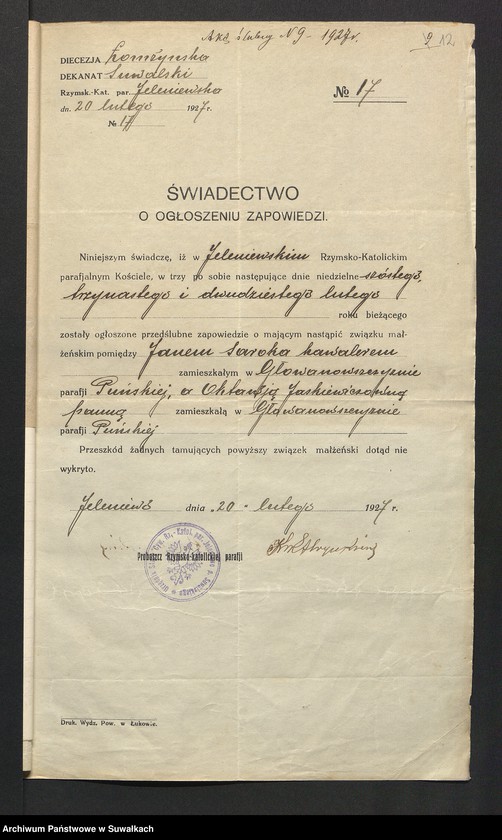 Akt ślubny N 9 - 1927r.
2 12
DIECEZJA Łomżyńska
DEKANAT Suwalski
Rzymsk.-Kat. par. Jeleniewska
dn. 20 lutego 1927 r.
№ 17
№ 17
ŚWIADECTWO
O OGŁOSZENIU ZAPOWIEDZI.
Niniejszym świadczę, iż w Jeleniewskim Rzymsko-Katolickim
parafjalnym Kościele, w trzy po sobie następujące dnie niedzielne szóstego,
trzynastego i dwudziestego lutego
roku bieżącego
zostały ogłoszone przedślubne zapowiedzie o mającym nastąpić związku mał-
żeńskim pomiędzy Janem Saroka kawalerem
zamieszkałym w Głowanowszczyznie
parafji Puńskiej, a Oktawją Jaskiewiczówną
panną zamieszkałą w Głowanowszczyznie
parafji Puńskiej
Przeszkód żadnych tamujących powyższy związek małżeński dotąd nie
wykryto.
Jeleniewo dnia "20" lutego 1927 r.
Proboszcz Rzymsko-katolickiej parafji
Druk. Wydz. Pow. w Łukowie.
Archiwum Państwowe w Suwałkach